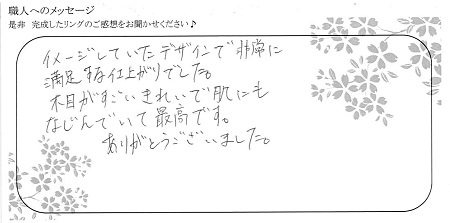 職人へのメッセージ
是非 完成したリングのご感想をお聞かせください♪
イメージしていたデザインで非常に
満足する仕上がりでした。
木目がすごいきれいで肌にも
なじんでいて最高です。
ありがとうございました。